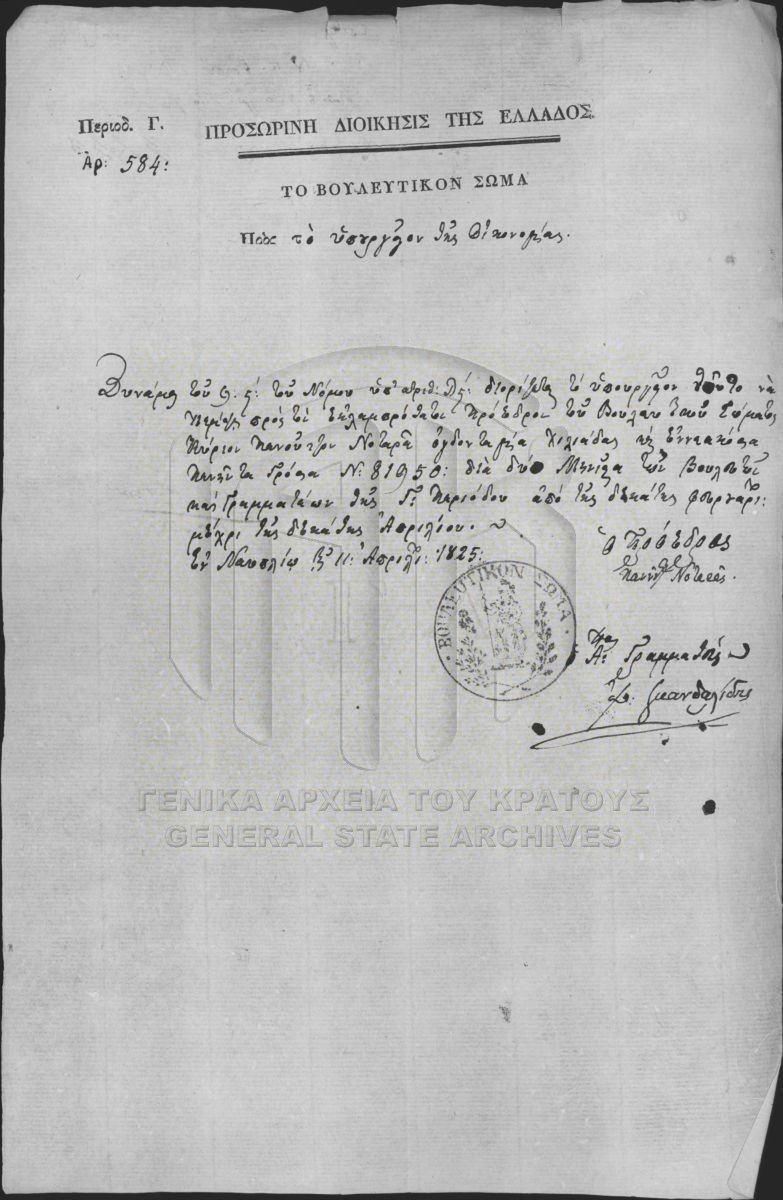 Περιοδ. Γ.
ΠΡΟΣΩΡΙΝΗ ΔΙΟΙΚΗΣΙΣ ΤΗΣ ΕΛΛΑΔΟΣ.
Ἀρ: 584:
ΤΟ ΒΟΥΛΕΥΤΙΚΟΝ ΣΩΜΑ
Πρὸς τὸ ὑπουργεῖον τῆς Οἰκονομίας.
Δυνάμει τοῦ τοῦ Νόμου ὑπ' ἀριθ: διορίζεται τὸ ὑπουργεῖον τοῦτο νὰ
πρὸς τὸν Πρόεδρον τοῦ Βουλευτικοῦ Σώματος
Κύριον Πανοῦτζον Νοταρᾶ ὀγδοῆντα μία χιλιάδας ἐννεακόσια
πενῆντα Γρόσια Ν: 81950: διὰ δύο τῶν Βουλευτῶν
καὶ Γραμματέων τῆς Γ: Περιόδου ἀπὸ τῆς δεκάτης φευρουαρί:
μέχρι τῆς δεκάτης Ἀπριλίου.
Ἐν Ναυπλίῳ τῇ 11: Ἀπριλί: 1825:
Ὁ Πρόεδρος
Νοταρᾶς.
ΒΟΥΛΕΥΤΙΚΟΝ ΣΩΜΑ
Ὁ Α: Γραμματεὺς
Σκανδαλίδης
ΓΕΝΙΚΑ ΑΡΧΕΙΑ ΤΟΥ ΚΡΑΤΟΥΣ
GENERAL STATE ARCHIVES